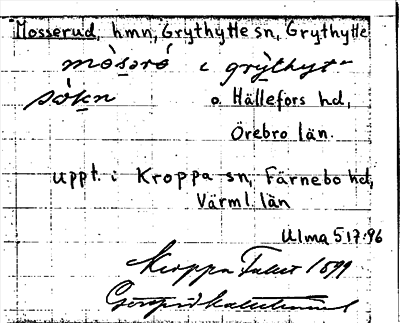 Mosserud, hmn, Grythytte sn, Grythytte
mòsərò i grỳthyt-
sókn o. Hällefors hd,
Örebro län.
uppt. i Kroppa sn, Färnebo hd,
Värml. län
Ulma 517:96
Kroppa 1899